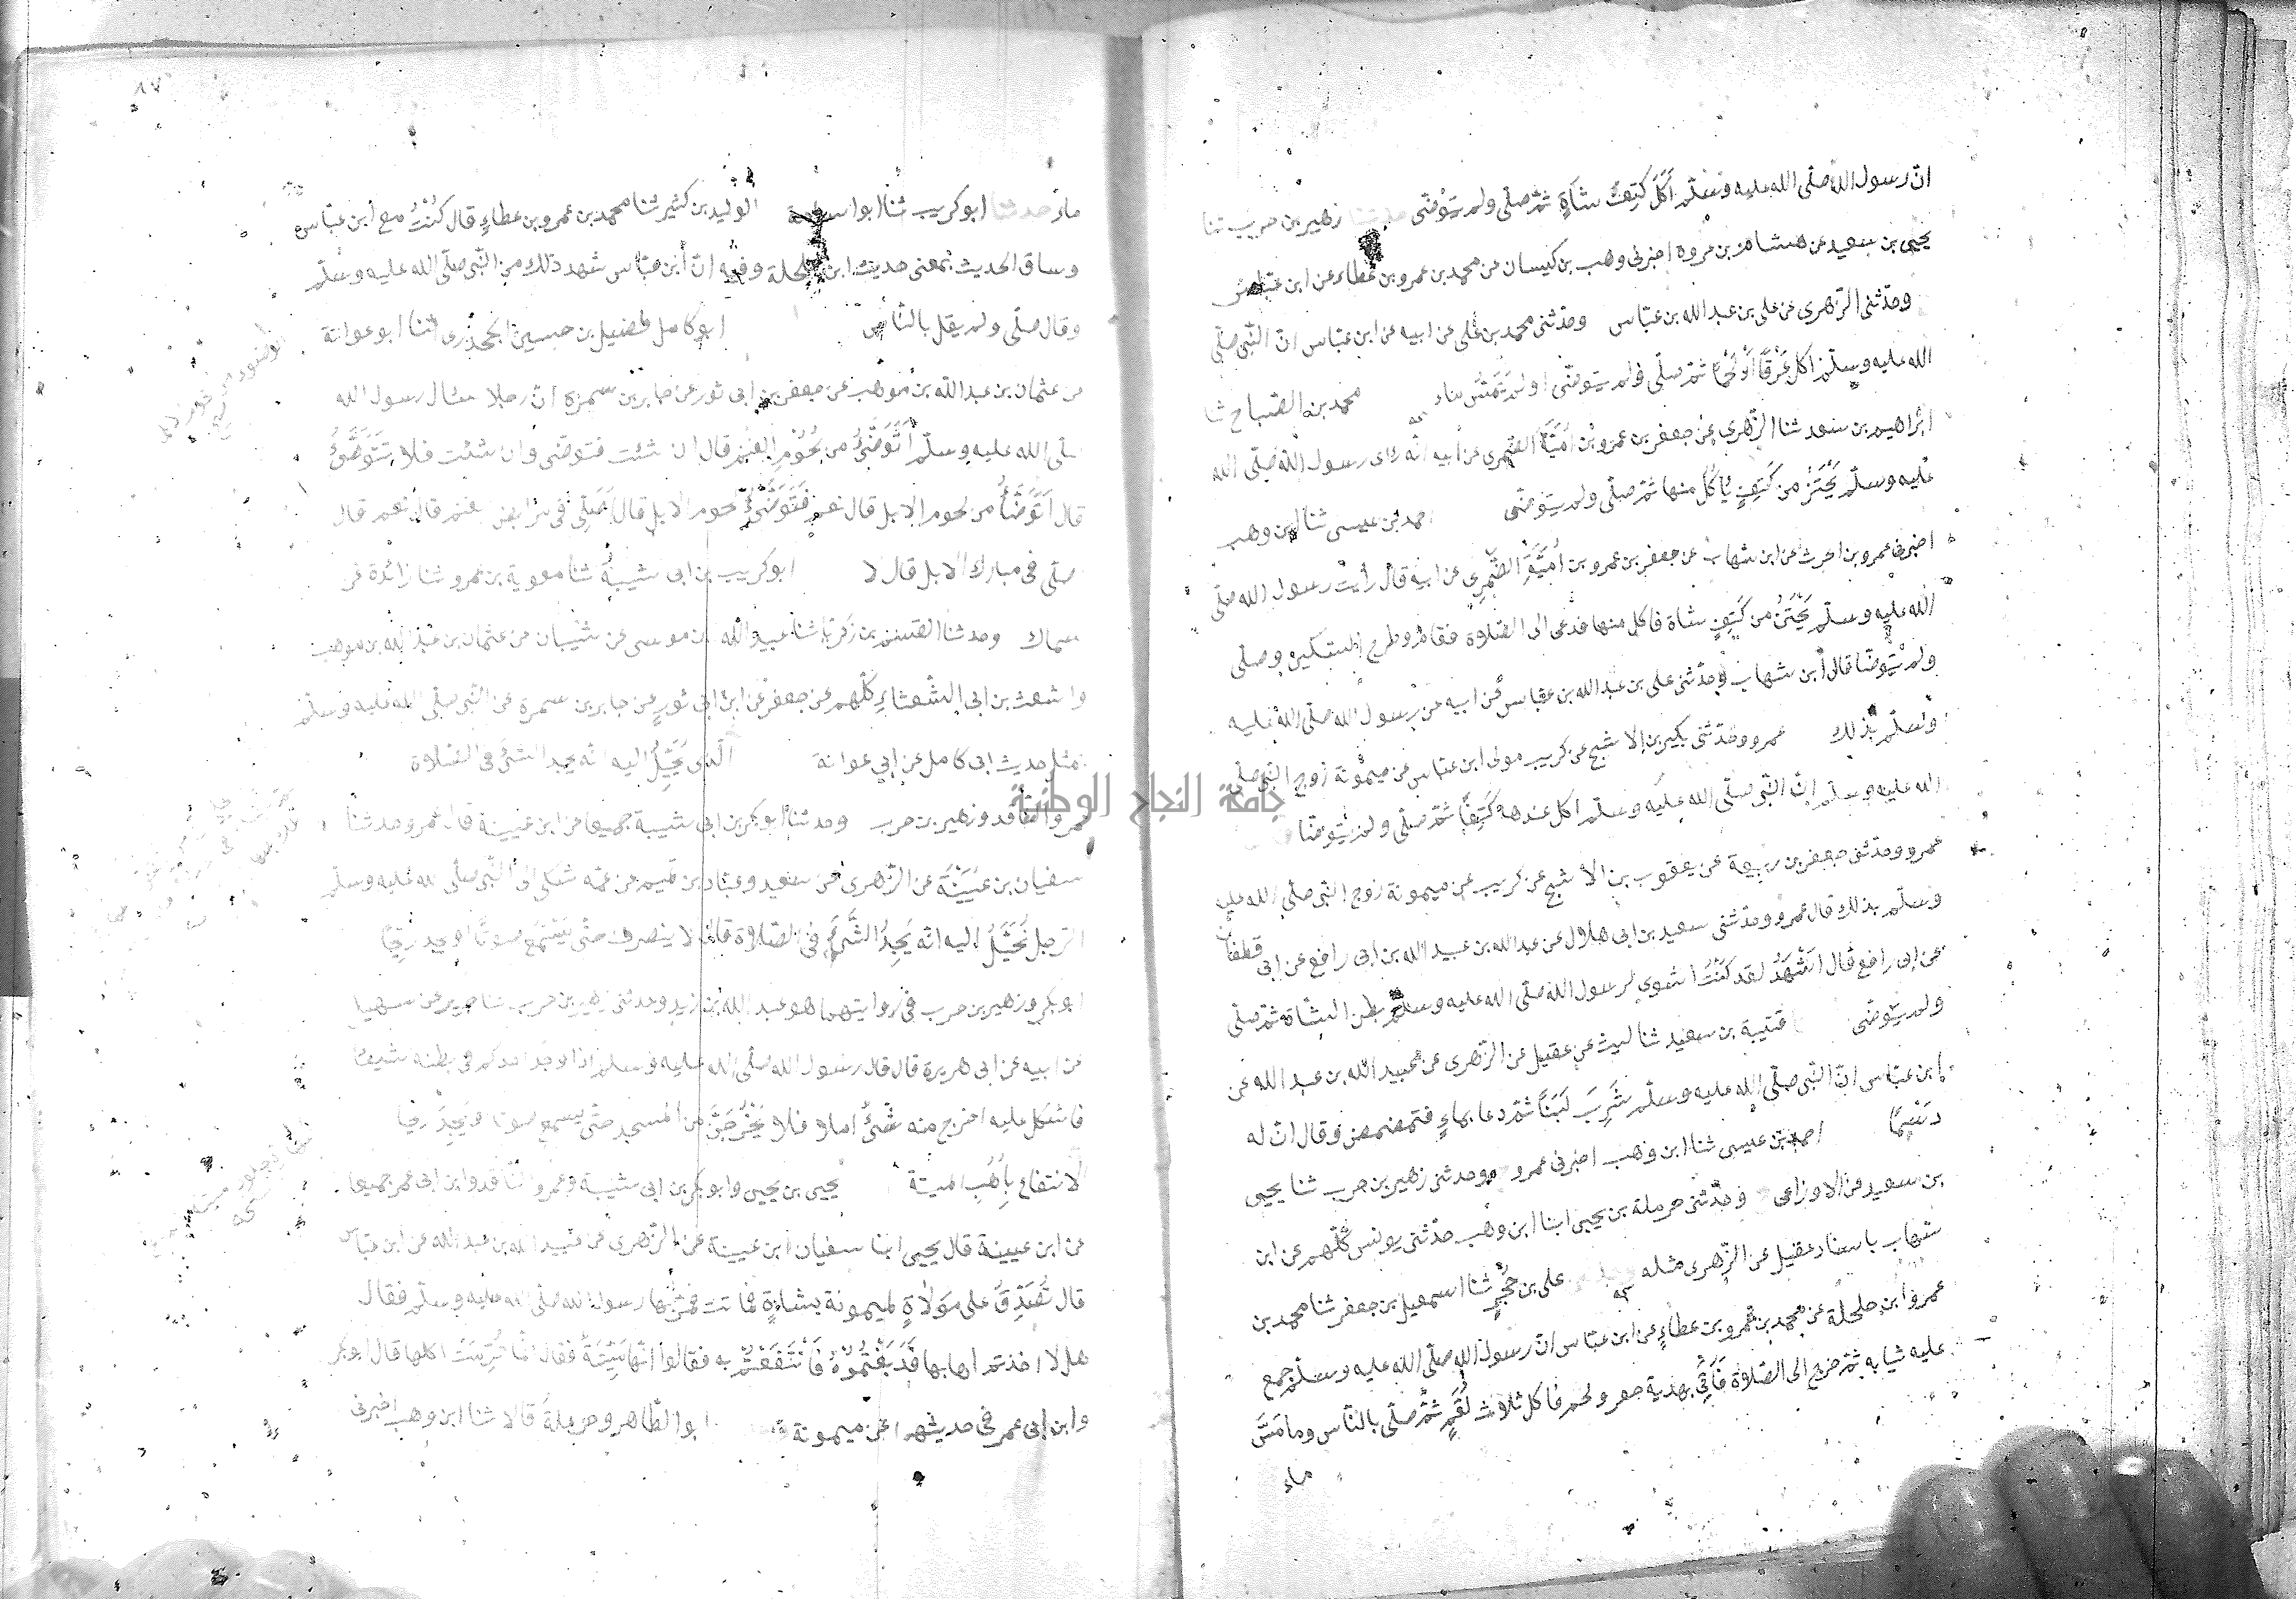 ان رسول الله صلى الله عليه وسلم أكل كتف شاة ثم صلى ولم يتوضى حدثنا زهير بن حرب ثنا
يحيى بن سعيد عن هشام بن عروة اخبرنى وهب بن كيسان عن محمد بن عمرو بن عطاء عن ابن عباس
وحدثنى الزهرى عن على بن عبد الله بن عباس وحدثنى محمد بن على عن ابيه عن ابن عباس ان النبى صلى
الله عليه وسلم اكل عَرْقًا أو لحمًا ثم صلى ولم يتوضى اولم يمس ماء محمد بن الصباح ثنا
ابراهيم بن سعد ثنا الزهرى عن جعفر بن عمرو بن أمية الضمرى عن أبيه انه راى رسول الله صلى الله
عليه وسلم يَحْتَز من كَتِفٍ يأكل منها ثم صلى ولم يتوضى احمد بن عيسى ثنا ابن وهب
اخبرنى عمرو بن الحرث عن ابن شهاب عن جعفر بن عمرو بن أُمَيَّةَ الضَّمْرِى عن ابيه قال رأيت رسول الله صلى
الله عليه وسلم يَحْتَزُ من كَتِفٍ شاة فاكل منها فدعى الى الصلاة فقام وطرح السكين وصلى
ولم يتوضا قال ابن شهاب وحدثنى على بن عبد الله بن عباس عن ابيه عن رسول الله صلى الله عليه
وسلم بذلك عمرو وحدثنى بكير بن الاشج عن كريب مولى ابن عباس عن ميمونة زوج النبى صلى
الله عليه وسلم ان النبى صلى الله عليه وسلم اكل عندها كَتِفًا ثم صلى ولم يتوضا
عمرو وحدثنى جعفر بن ربيعة عن يعقوب بن الاشج عن كريب عن ميمونة زوج النبى صلى الله عليه
وسلم بذلك قال عمرو وحدثنى سعيد بن ابى هلال عن عبد الله بن عبيد الله بن ابى رافع عن ابى غطفان
عن ابى رافع قال اَشْهَدُ لقد كُنْتُ اشوى لرسول الله صلى الله عليه وسلم بطن الشاة ثم صلى
ولم يتوضى قتيبة بن سعيد ثنا ليث عن عقيل عن الزهرى عن عبيد الله بن عبد الله عن
ابن عباس ان النبى صلى الله عليه وسلم شَرِبَ لَبَنًا ثم دعا بماءٍ فتمضمض وقال ان له
دَسَمًا احمد بن عيسى ثنا ابن وهب اخبرنى عمرو وحدثنى زهير بن حرب ثنا يحيى
بن سعيد عن الاوزاعى وحدثنى حرملة بن يحيى ابنا ابن وهب حدثنى يونس كلهم عن ابن
شهاب باسناد عقيل عن الزهرى مثله على بن حُجْرٍ ثنا اسمعيل بن جعفر ثنا محمد بن
عمرو ابن حلحلة عن محمد بن عمرو بن عطاءٍ عن ابن عباس ان رسول الله صلى الله عليه وسلم جمع
عليه ثيابه ثم خرج الى الصلاة فَأُتِىَ بهدية خبز ولحم فاكل ثلاث لُقَمٍ ثم صلى بالناس وما مَسَّ
ماء
٨٧
ماءً حدثنا ابو كريب ثنا ابو اسامة الوليد بن كثير ثنا محمد بن عمرو بن عطاءٍ قال كُنْتُ مع ابن عباس
وساق الحديث بمعنى حديث ابن حلحلة وفيه ان ابن عباس شهد ذلك من النبى صلى الله عليه وسلم
وقال صلى ولم يقل بالناس ابو كامل فضيل بن حسين الجحدرى ثنا ابو عوانة
عن عثمان بن عبد الله بن موهب عن جعفر بن ابى ثور عن جابر بن سمرة ان رجلا سئال رسول الله
صلى الله عليه وسلم أَتَوَضَّىُٔ من لُحُوْمِ الغنم قال ان شئت فتوضى وان شئت فلا تَتَوَضَّىُٔ
قال أَتَوَضَّأُ من لحوم الابل قال نعم فَتَوَضَّىُٔ لحوم الابل قال اُصَلِّى فى مرابض الغنم قال نعم قال
اصلى فى مبارك الابل قال لا ابو كريب بن ابى شيبة ثنا معوية بن عمرو ثنا زائدة عن
سماك وحدثنا القسم بن زكريا ثنا عبيد الله بن موسى عن شيبان عن عثمان بن عبد الله بن موهب
واشعث بن ابى الشعثاءِ كلهم عن جعفر عن ابن ابى ثورٍ عن جابر بن سمرة عن النبى صلى الله عليه وسلم
بمثل حديث ابى كامل عن ابى عوانة الذى يُخَيَّلُ اليه انه يجد الشئ فى الصلاة
عمرو الناقد وزهير بن حرب وحدثنا ابو بكر بن ابى شيبة جميعا عن ابن عيينة قال عمرو حدثنا
سفيان بن عُيَيْنَةَ عن الزهرى عن سعيد وعباد بن تميم عن عمه شكى الى النبى صلى الله عليه وسلم
الرجل يُخَيَّلُ اليه انه يَجِدُ الشَّىْٔ فى الصلاة قال لا ينصرف حتى يَسْمَع صوتًا او يجد ريحًا
ابو بكر وزهير بن حرب فى روايتهما هو عبد الله بن زيد وحدثنى زهير بن حرب ثنا جرير عن سهيل
عن ابيه عن ابى هريرة قال قال رسول الله صلى الله عليه وسلم اذا وجد احدكم فى بطنه شيئا
فاشكل عليه اخرج منه شَىْٔ ام لا فلا يَخْرُجَنَّ من المسجد حتى يسمع صوتا او يَجِدَ ريحا
الانتفاع بِأُهُبِ الميتة يحيى بن يحيى وابو بكر بن ابى شيبة وعمرو الناقد وابن ابى عمر جميعا
عن ابن عيينة قال يحيى ابنا سفيان ابن عيينة عن الزهرى عن عبيد الله بن عبد الله عن ابن عباس
قال تُصُدِّقَ على مَولاةٍ لميمونة بشاةٍ فماتت فمر بها رسول الله صلى الله عليه وسلم فقال
هلا اخذتم اهابها فَدَبَغْتُمُوْهُ فَانْتَفَعْتُمْ به فقالوا انها مَيْتَةٌ فقال انما حُرِّمَتْ اكلها قال ابو بكر
وابن ابى عمر فى حديثهما عن ميمونة ابو الطاهر وحرملة قالا ثنا ابن وهب اخبرنى
جامعة النجاح الوطنية